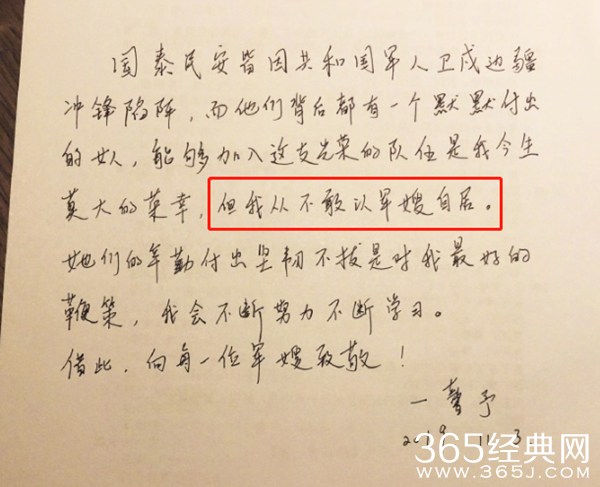 国泰民安皆因共和国军人卫戍边疆
冲锋陷阵，而他们背后都有一个默默付出
的女人，能够加入这支光荣的队伍是我今生
莫大的荣幸，但我从不敢以军嫂自居。
她们的辛勤付出坚韧不拔是对我最好的
鞭策，我会不断努力不断学习。
借此，向每一位军嫂致敬！
一馨予
2019 11.3
365经典网
www.365j.com